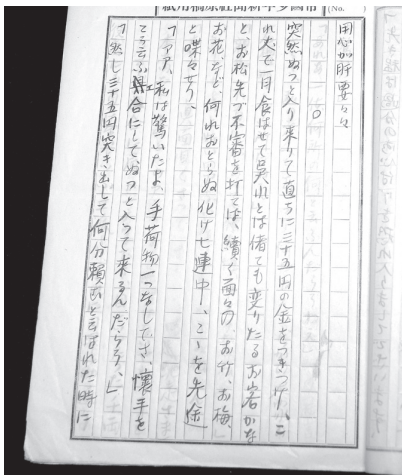 紙用稿原社聞新夕少国帝 (No.
用心が肝要々々
○
突然ぬつと入り来りて直ちに三十五円の金をつきつけ、こ
れ丈で一月食はせて呉れとは偖ても変りたるお岩かな
と、お松先づ不審を打ては、続く面々の、お竹、お梅、
お花など、何れおとらぬ化け七連中、こゝを先途
と喋々せり、
「アア、私は驚いたよ、手荷物一つなしでさ、懐手を
てう云ふ具合にしてぬつと入つて来るんだらう、」
「然し三十五円突き出して何分頼むと云はれた時に